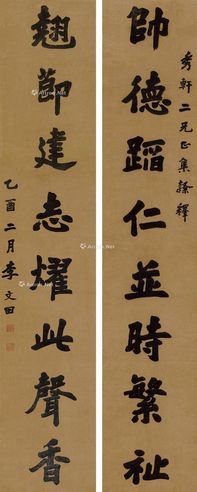 帥德蹈仁並時繁祉
秀軒二兄正集隸釋
翹節建志燿此聲香
乙酉二月李文田